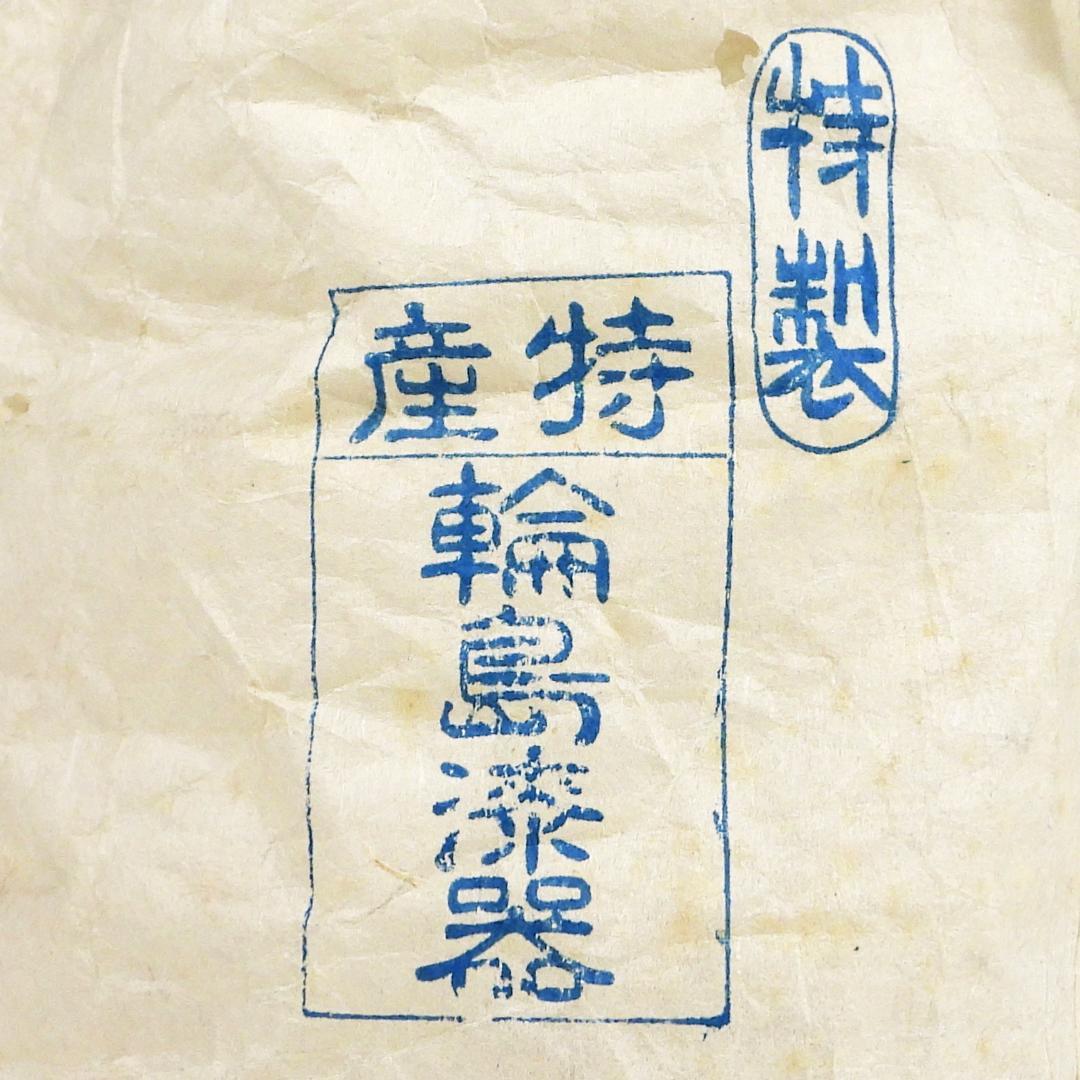 特製
特産
輪島漆器